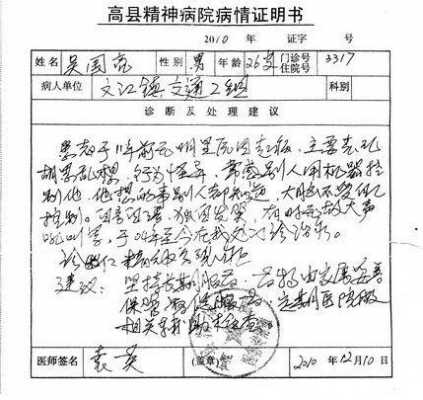 高县精神病院病情证明书
2010 年 证字 号
姓名 吴国亮 性别 男 年龄 26岁 门诊号 住院号 3317
病人单位 文江镇交通2组 科别
诊断及处理建议
患者于11年前无明显原因起病,主要表现
胡思乱想,行为怪异,常感别人用机器控
制他,他想的事别人都知道,大脑不受自己
控制。自言自语,独自发笑,有时无故大声
吼叫等,于04年至今在我处门诊治疗。
诊断:精神分裂症
建议:坚持长期服药,药物由家属妥善
保管,督促服药;定期医院做
相关辅助检查。
医师签名 袁英 (盖章) 2010 年 12 月 10 日